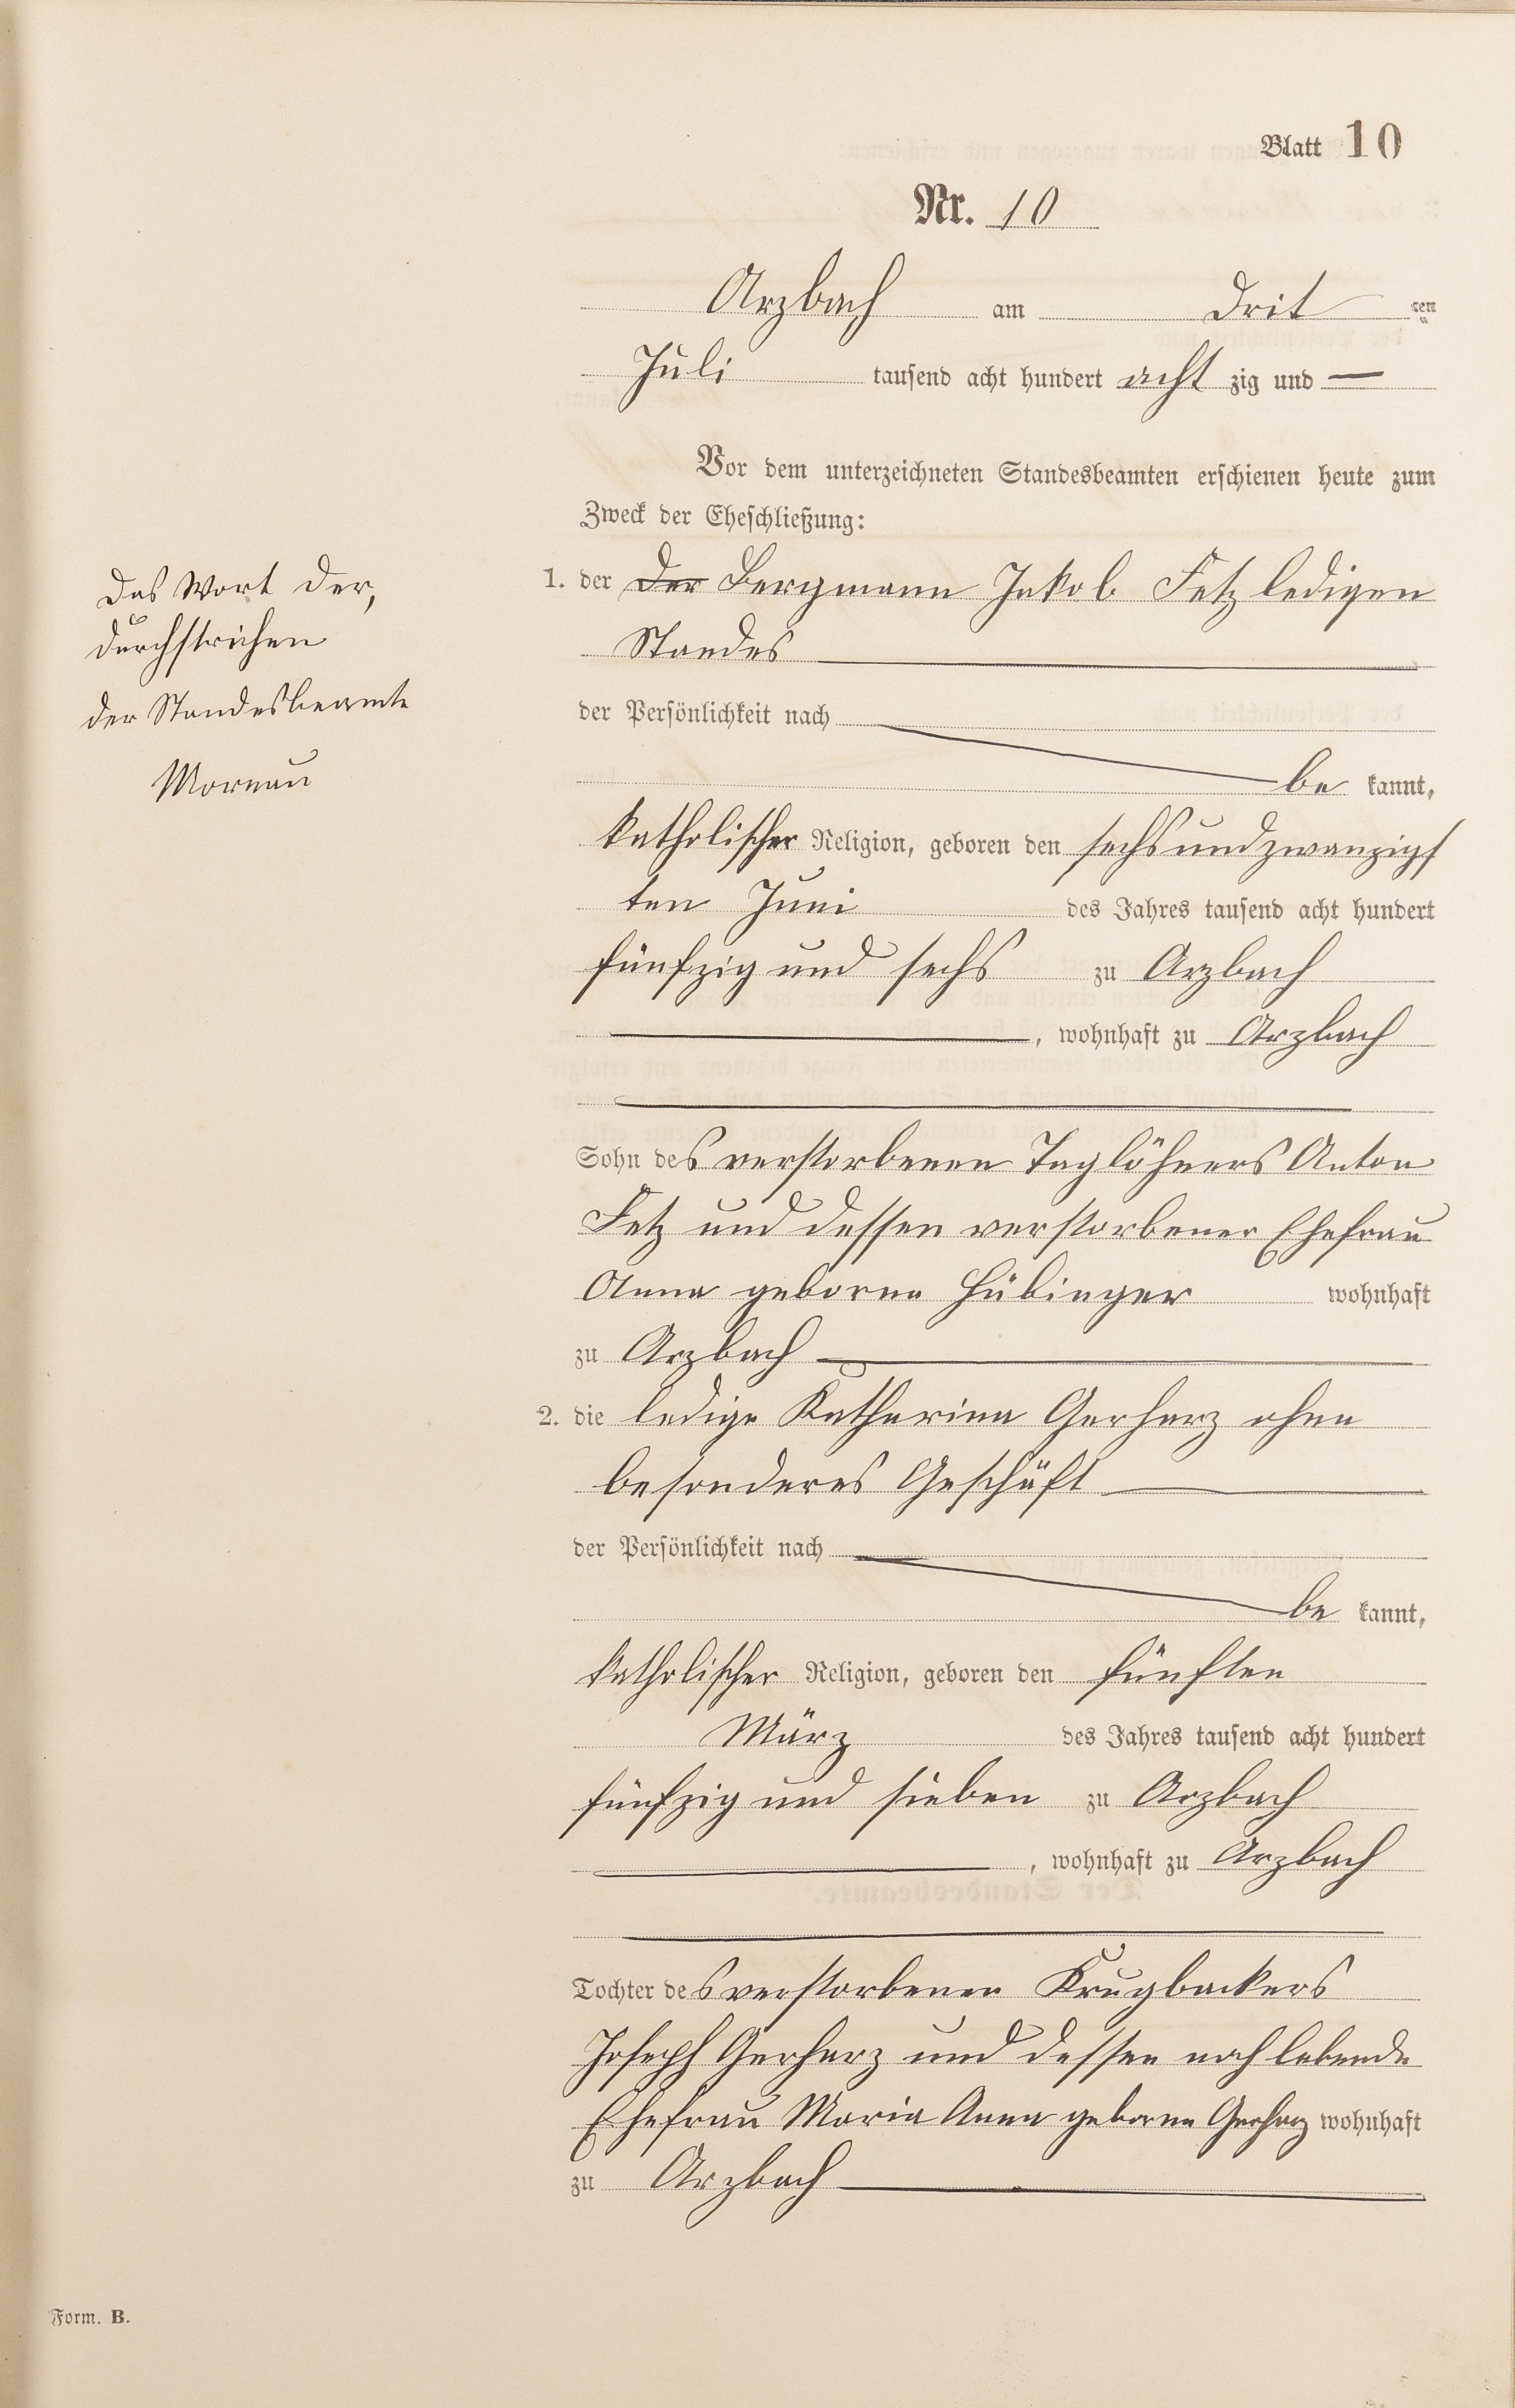 Blatt 10
Nr. 10
Arzbach am Drit ten
Juli tausend acht hundert acht zig und —
Vor dem unterzeichneten Standesbeamten erschienen heute zum
Zweck der Eheschließung:
1. der Der Bergmann Jakob Fetz ledigen
Standes
der Persönlichkeit nach
be kannt,
katholischer Religion, geboren den sechsundzwanzigs
ten Juni des Jahres tausend acht hundert
fünfzig und sechs zu Arzbach
, wohnhaft zu Arzbach
Sohn des verstorbenen Taglöhners Anton
Fetz und dessen verstorbener Ehefrau
Anna geborne Hübinger wohnhaft
zu Arzbach
2. die ledige Katharina Gerharz ohne
besonderes Geschäft
der Persönlichkeit nach
be kannt,
katholischer Religion, geboren den fünften
März des Jahres tausend acht hundert
fünfzig und sieben zu Arzbach
, wohnhaft zu Arzbach
Tochter des verstorbenen Krugbäckers
Joseph Gerharz und dessen noch lebende
Ehefrau Maria Anna geborne Gerharz wohnhaft
zu Arzbach
Das Wort Der,
durchstrichen
der Standesbeamte
Mornau
Form. B.